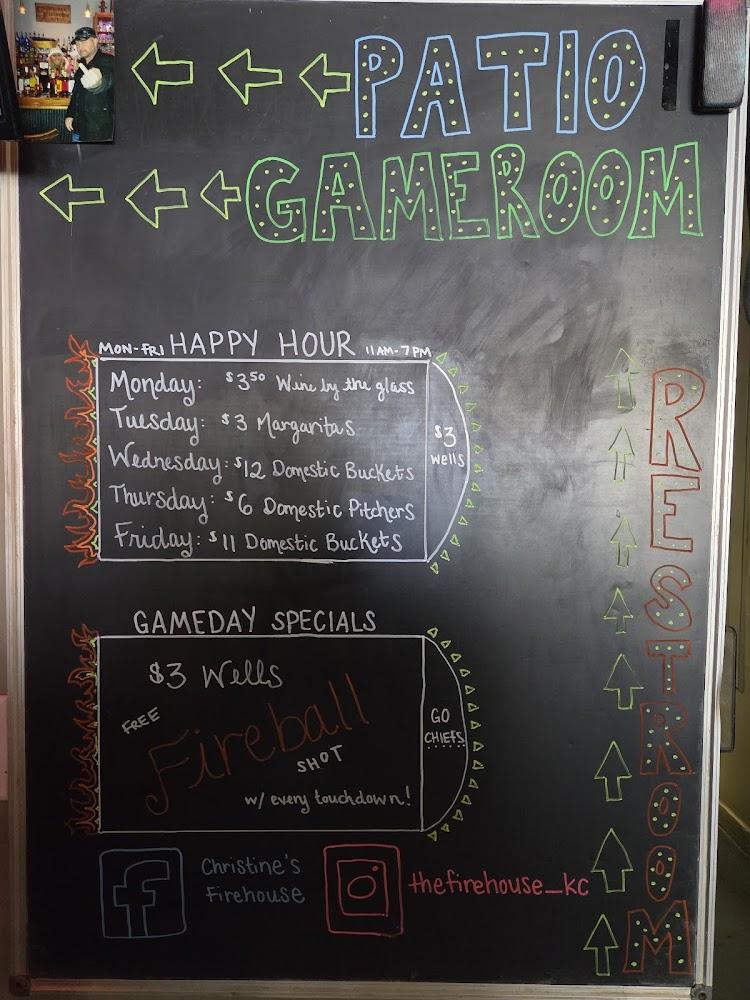 PATIO
GAMEROOM
MON-FRI HAPPY HOUR 11AM-7PM
Monday: $3⁵⁰ Wine by the glass
Tuesday: $3 Margaritas
Wednesday: $12 Domestic Buckets
Thursday: $6 Domestic Pitchers
Friday: $11 Domestic Buckets
$3
wells
RESTROOM
GAMEDAY SPECIALS
$3 Wells
FREE
Fireball
SHOT
w/ every touchdown!
GO
CHIEFS
f
Christine's
Firehouse
thefirehouse_kc